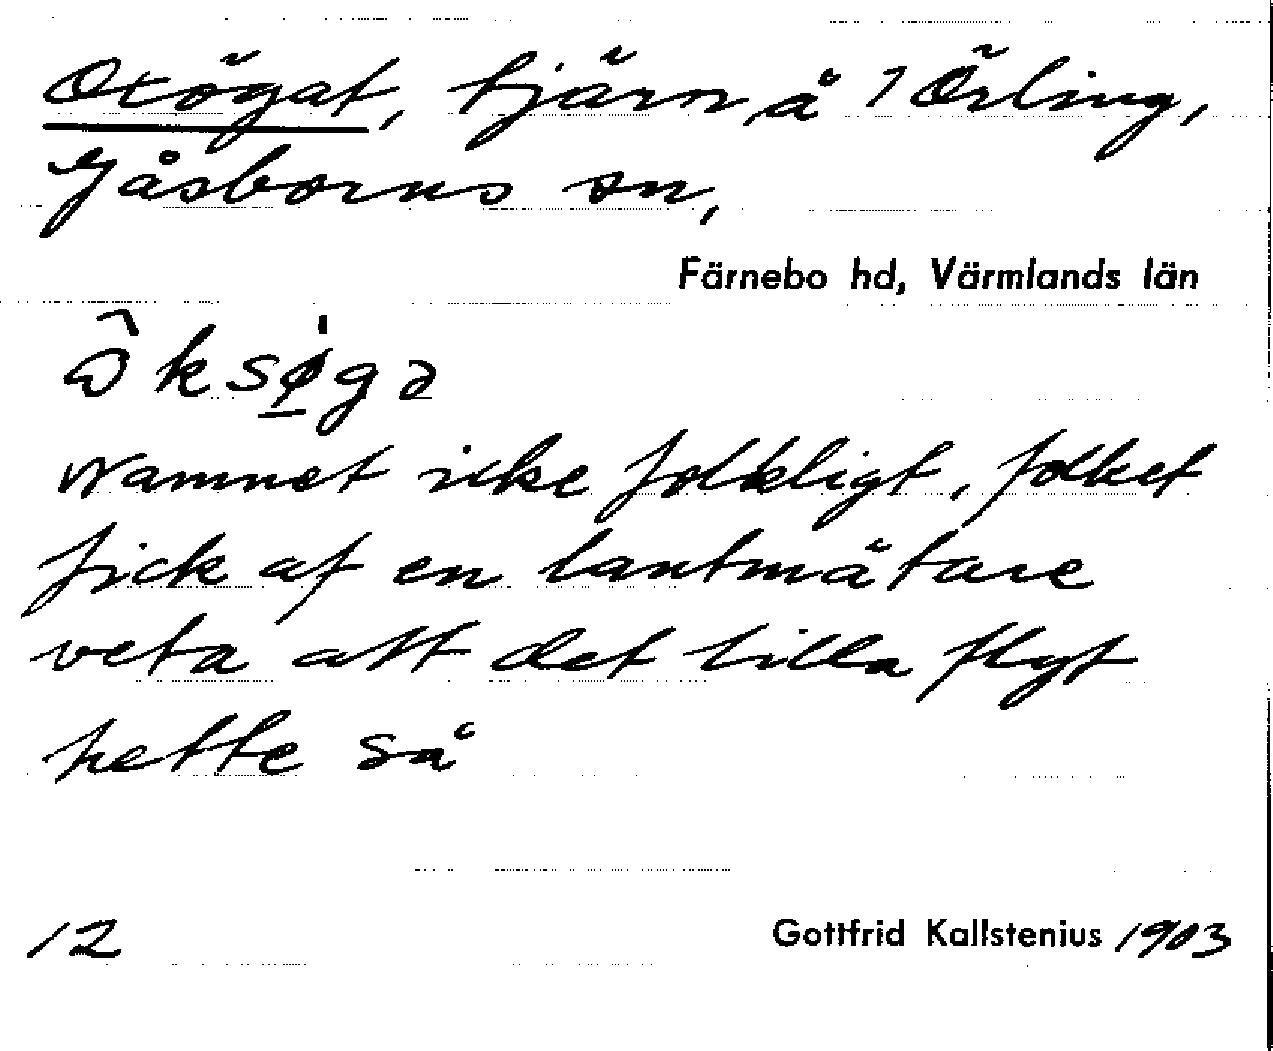 Oxögat, tjärn å 1 Örling,
Gåsborns sn,
Färnebo hd, Värmlands län
Namnet icke folkligt, folket
fick af en lantmätare
veta att det lilla flyt
hette så
12 Gottfrid Kallstenius 1903